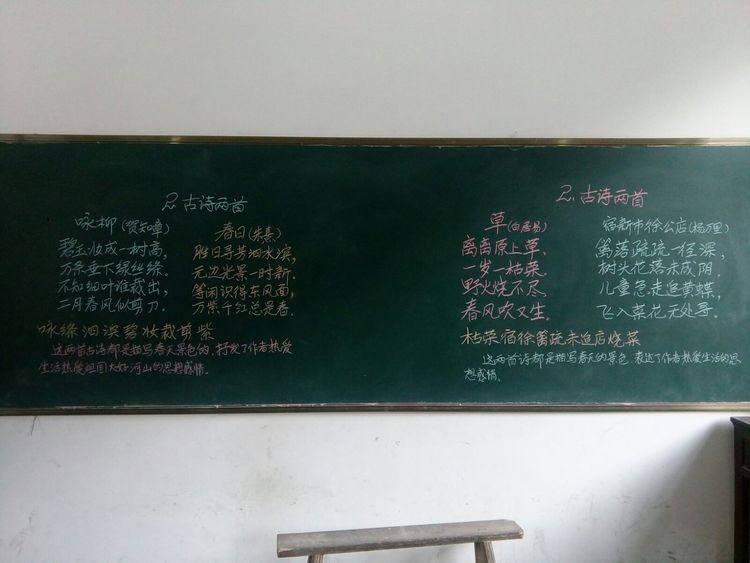 2. 古诗两首
咏柳(贺知章)
碧玉妆成一树高,
万条垂下绿丝绦。
不知细叶谁裁出,
二月春风似剪刀。
春日(朱熹)
胜日寻芳泗水滨,
无边光景一时新。
等闲识得东风面,
万紫千红总是春。
咏绦泗滨碧妆裁剪紫
这两首古诗都是描写春天景色的,抒发了作者热爱
生活热爱祖国大好河山的思想感情。
2. 古诗两首
草(白居易)
离离原上草,
一岁一枯荣。
野火烧不尽,
春风吹又生。
宿新市徐公店(杨万里)
篱落疏疏一径深,
树头花落未成阴。
儿童急走追黄蝶,
飞入菜花无处寻。
枯荣宿徐篱疏未追店烧菜
这两首诗都是描写春天的景色,表达了作者热爱生活的思
想感情。